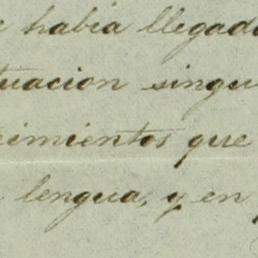 e había llegad
tuacion singu
cimientos que
lengua, y en